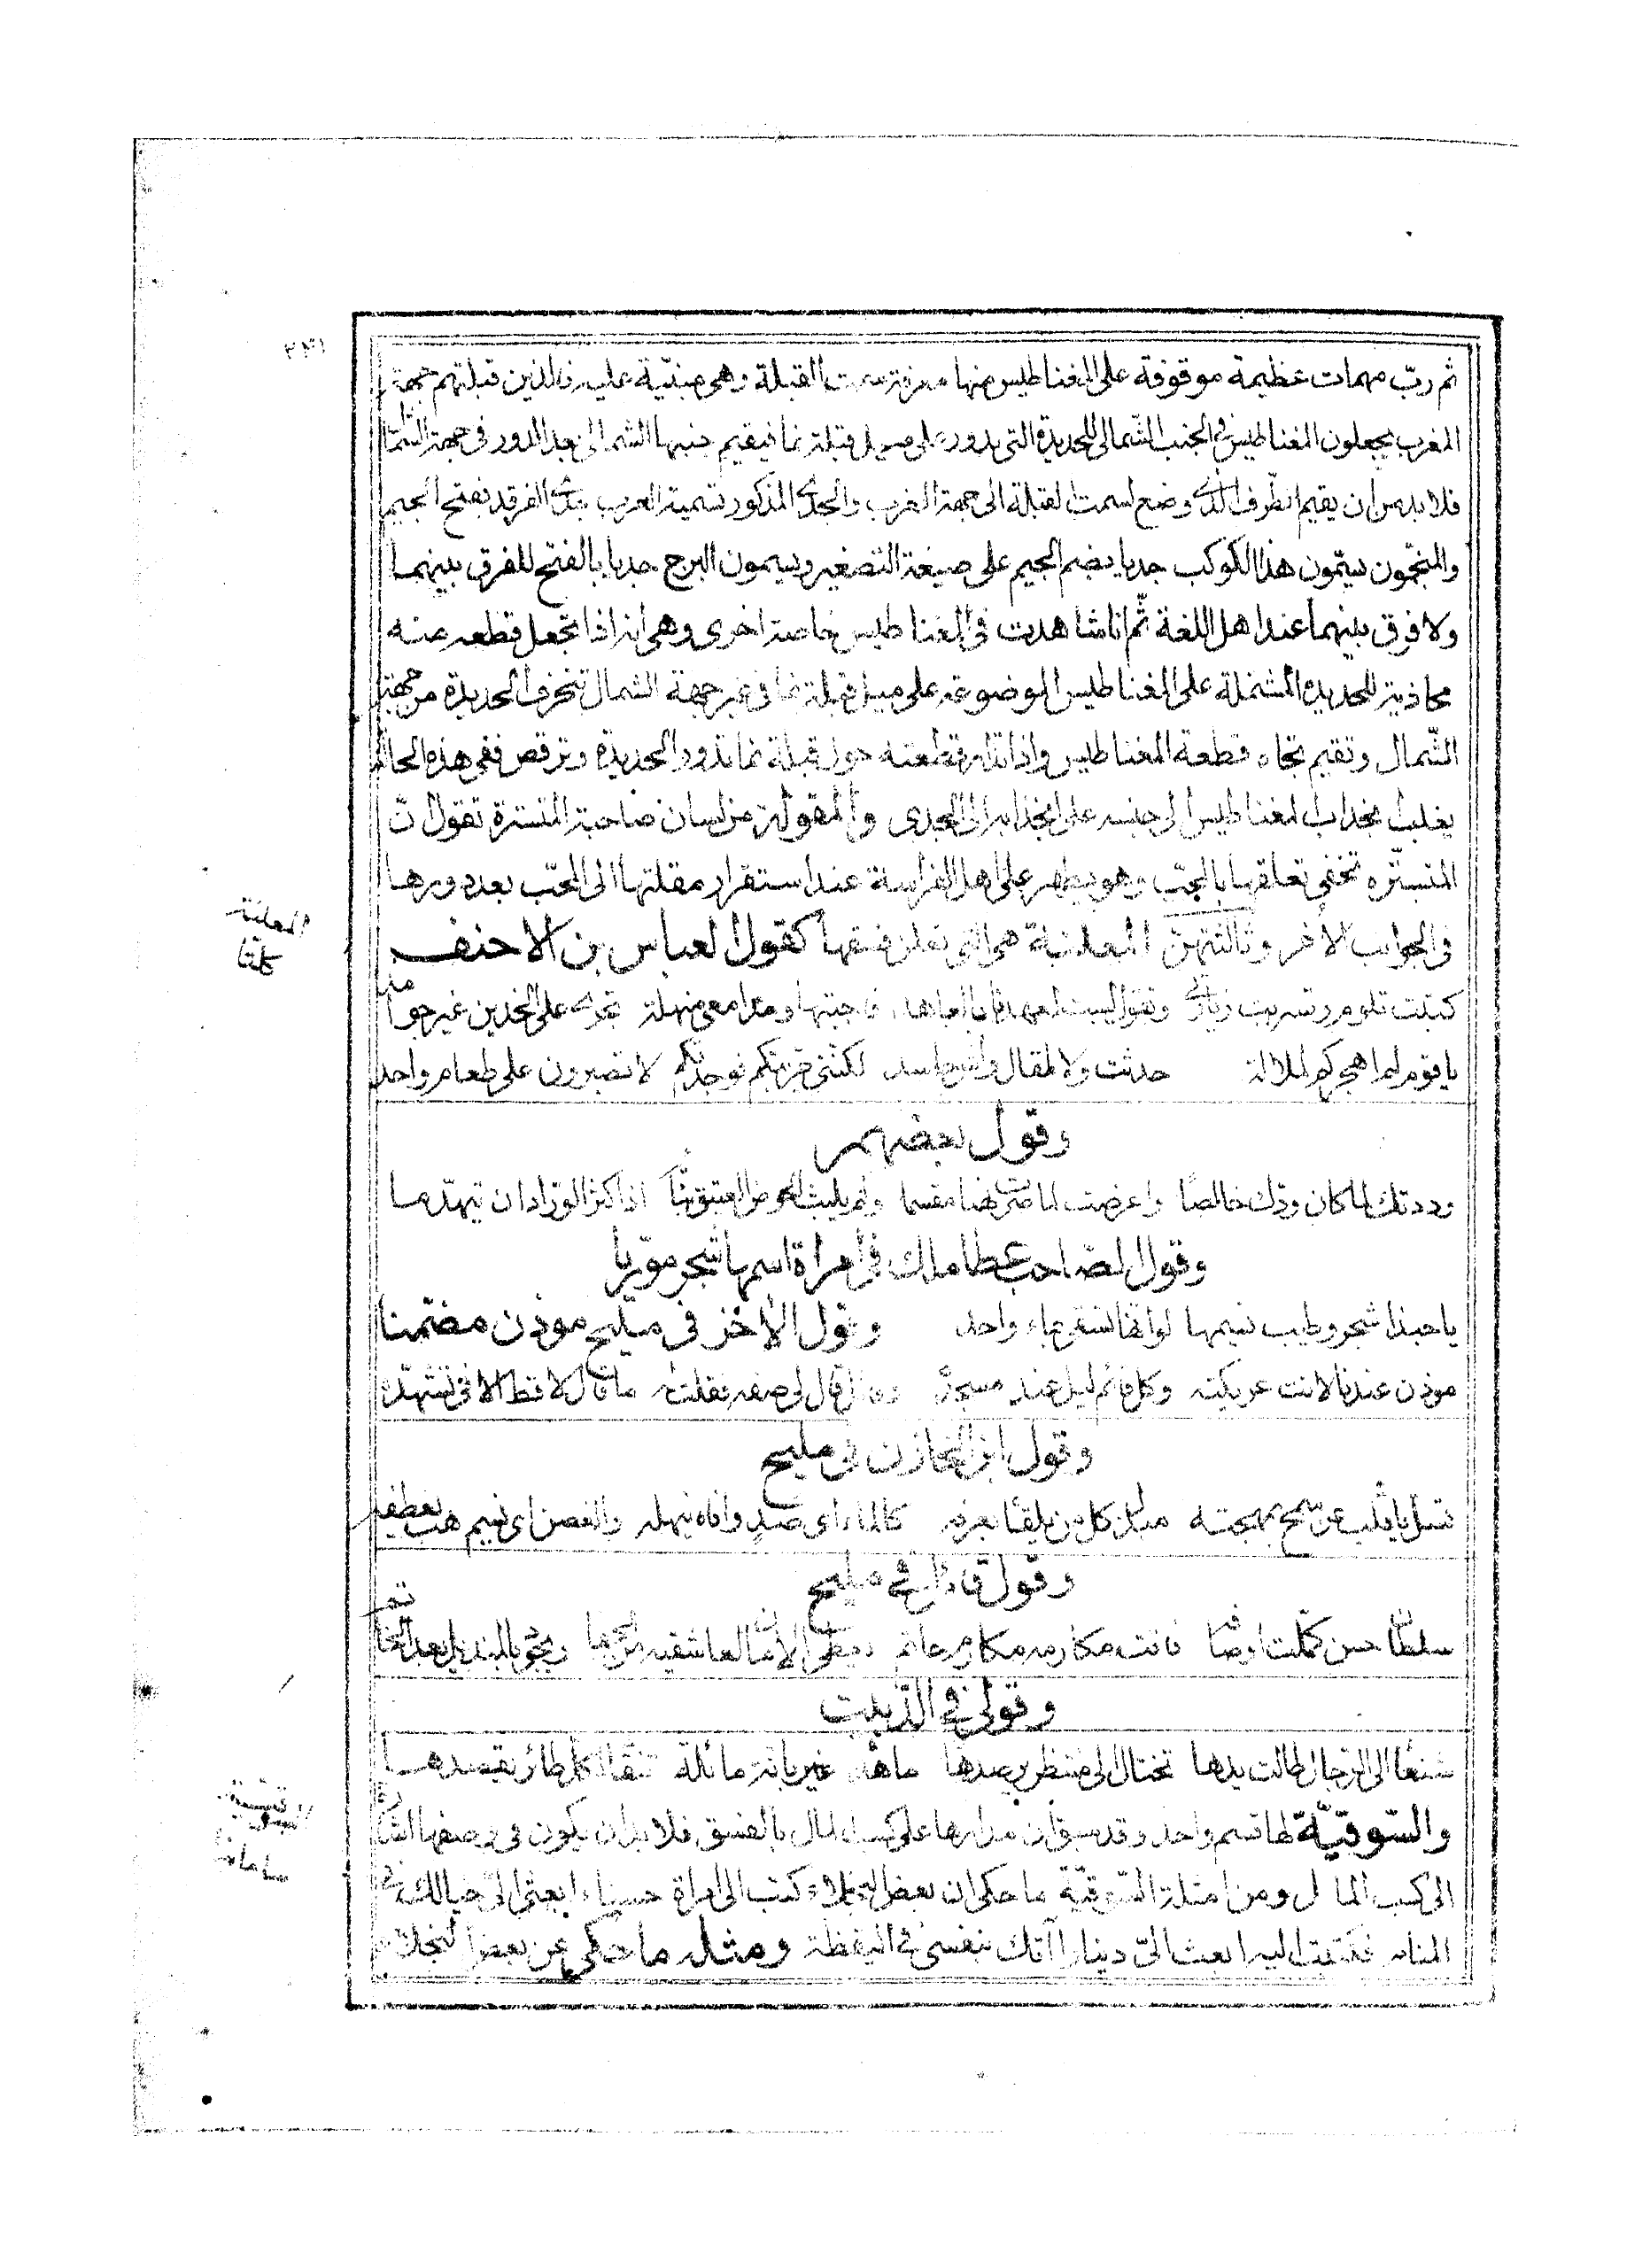 ثم ربّ مهمات عظيمة موقوفة على المغناطيس منها معرفة سمت القبلة وهي مبنيّة عليه فالذين قبلتهم جهة
المغرب يجعلون المغناطيس في الجنب الشمالي للحديدة التي يدور على ميل قبلة نما فيقيم جنبها الشمالي بعد الدور في جهة الشما
فلا بد من ان يقيم الطرف الذي وضع لسمت القبلة الى جهة الغرب والجدي المذكور تسمية العرب جدي الفرقد بفتح الجيم
والمنجّمون يسمّون هذا الكوكب جديا بضم الجيم على صيغة التصغير ويسمون البرج جديا بالفتح للفرق بينهما
ولا فرق بينهما عند اهل اللغة ثم انا شاهدت في المغناطيس خاصة اخرى وهي انه اذا تجعل قطعه منه
محاذية للحديدة المشتملة على المغناطيس الموضوعة على ميل قبلة نما في غير جهة الشمال تنحرف الحديدة من جهة
الشّمال وتقيم تجاه قطعة المغناطيس واذا تدار قطعته حول قبلة نما تدور الحديدة وترقص ففي هذه الحالة
يغلب انجذاب المغناطيس الى جنسه على انجذابه الى الجدي والمقولة من لسان صاحبة المتسترة تقول انّ
المتستّره تخفي تعلقها بالمحبّ وهو يظهر على اهل الفراسة عند استقرار مقلتها الى المحبّ بعد دورها
في الجوانب الاخر وثالثتهنّ المعلنة هي التي تعلن فسقها كقول العباس بن الاحنف
المعلنة
كتبت تلوم وتستريب زيارتي وتقول لست لعهدنا بالعاهد فاجبتها ومدامعي منهلة تجري على الخدين غير جوامد
يا قوم لم اهجركم لملالة حدثت ولا لمقال واش حاسد لكنني جربتكم فوجدتكم لا تصبرون على طعام واحد
وقول بعضهم
وددتك لما كان ودّك خالصًا واعرضت لما صرت نهبا مقسما ولم يلبث الحوض العتيق بناؤه اذا كثر الورّاد ان يتهدّما
وقول الصاحب عطا ملك في امراة اسمها شجر مورّيا
يا حبذا شجر وطيب نسيمها لو انها تسقى بماء واحد وقول الآخر في مليح موذن مضمّنا
موذن عندنا لانت عريكته وكل قائم ليل عند مسجده قال لي صفه فقلت ما قال لا قط الا في تشهّده
وقول ابن الخازن في مليح
تسلّ يا قلب عن سمح بمهجته مبذّل كل من يلقاه يعرفه كالماء اي صدٍ وافاه ينهله والغصن اي نسيم هبّ يعطفه
وقول قائل في مليح
سلطان حسن كملت اوصافه فاتت مكارمه مكارم حاتم يعطي الامان لعاشقيه
وقولي في الذبيت
شنعا الى الرجال طالت يدها تختال الى منتظر يرصدها ما هذه غير بانة مائلة تنقاد لكل طائر يقصدها
والسّوقيّة لها قسم واحد وقد سبق ان مدارها على كسب المال بالفسق فلا بد ان يكون في وصفها اشارة
الى كسب المال ومن امثلة السّوقيّة ما حكي ان بعض البخلاء كتب الى امراة حسناء ابعثي اليّ خيالك في
المنام فكتبت اليه ابعث اليّ دينارا آتك بنفسي في اليقظة ومثله ما حكي عن بعض البخلاء